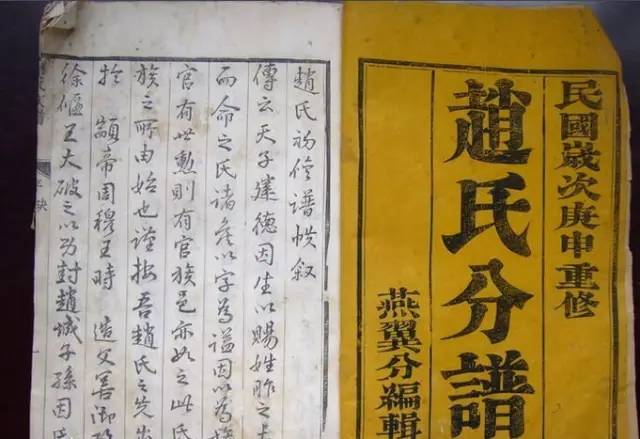 民國歲次庚申重修
趙氏分譜
燕翼分編輯
趙氏初修譜帙叙
傳云天子建德因生以賜姓胙之土
而命之氏諸矦以字為諡因以為族
官有世勲則有官族邑亦如之此氏
族之所由始也謹按吾趙氏之先出
於顓帝周穆王時 造父善御
徐偃王大破之以功封趙城子孫因氏